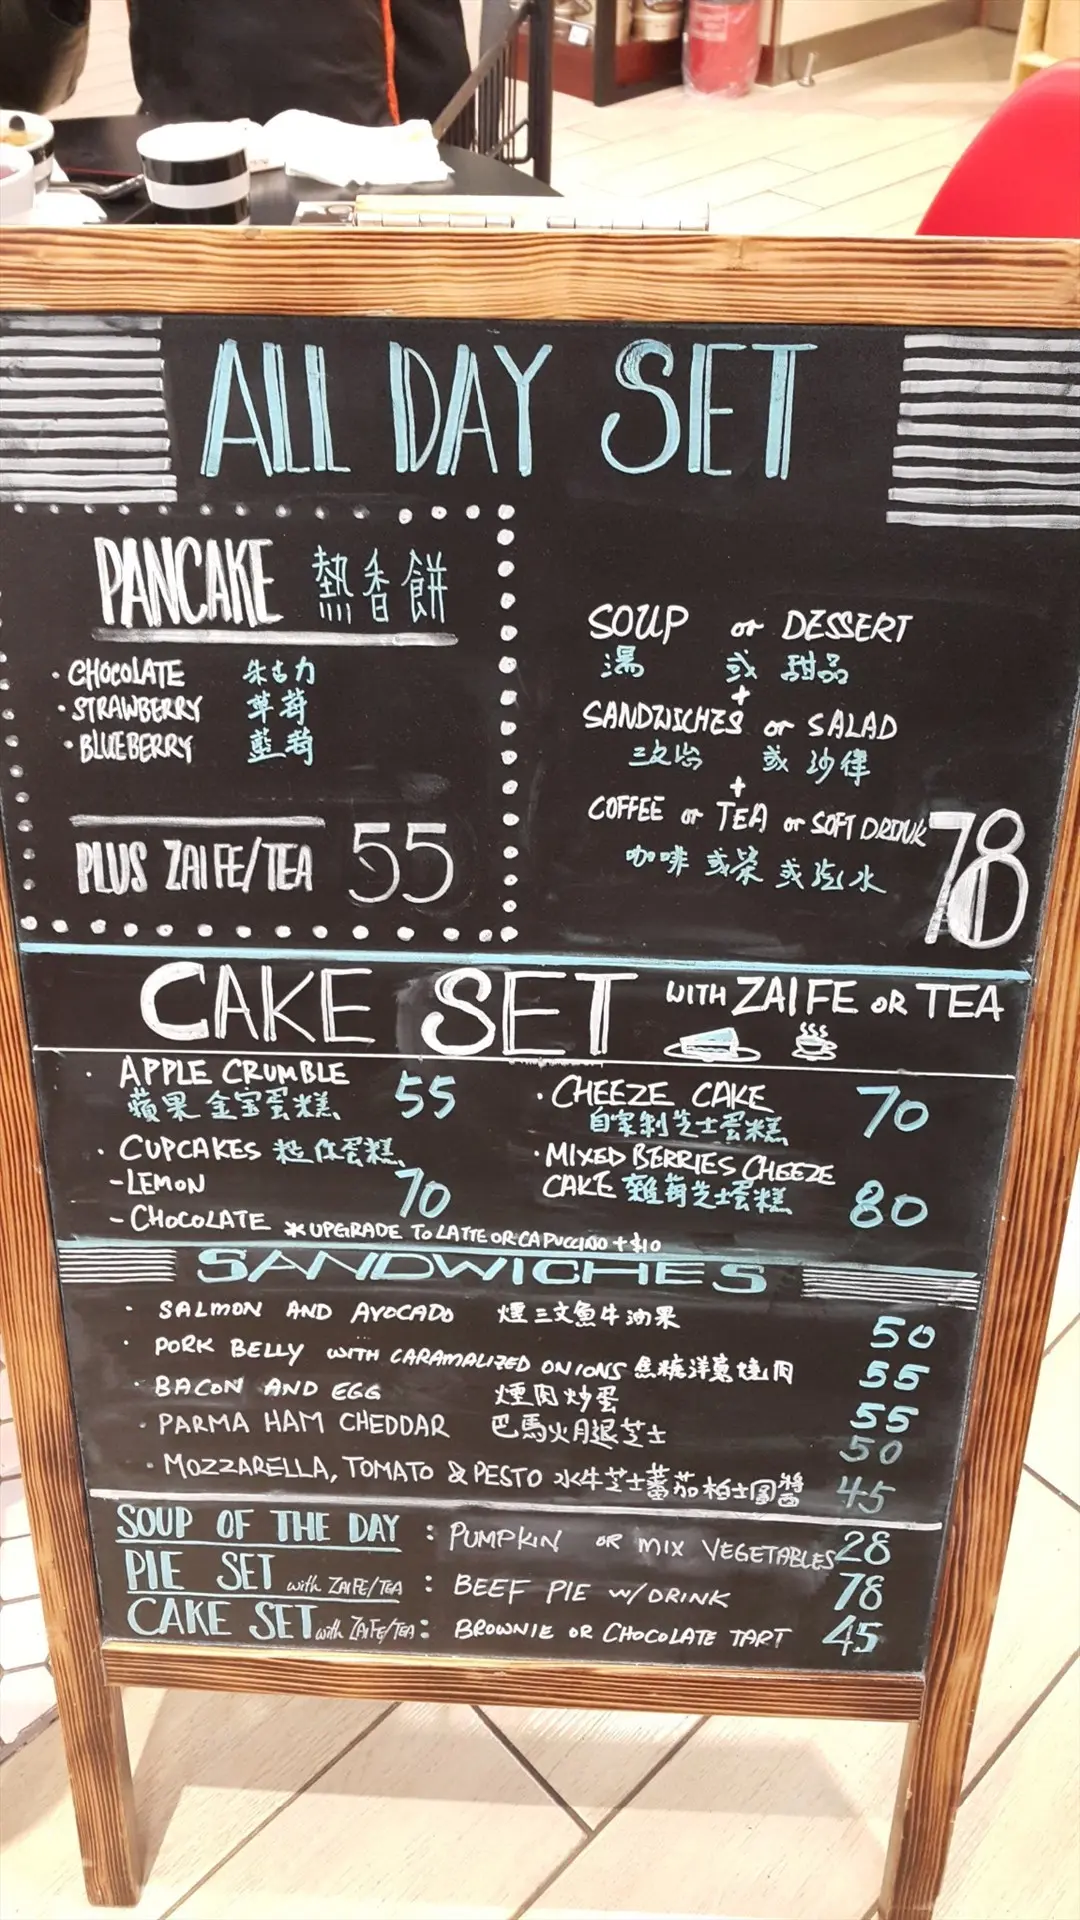 ALL DAY SET
PANCAKE 熱香餅
· CHOCOLATE 朱古力
· STRAWBERRY 草莓
· BLUEBERRY 藍莓
PLUS ZAIFE/TEA 55
SOUP or DESSERT
湯 或 甜品
+
SANDWICHES or SALAD
三文治 或 沙律
+
COFFEE or TEA or SOFT DRINK 78
咖啡 或茶 或汽水
CAKE SET WITH ZAIFE OR TEA
· APPLE CRUMBLE 55
蘋果金宝蛋糕
· CUPCAKES 粒仔蛋糕 70
-LEMON
-CHOCOLATE *UPGRADE TO LATTE OR CAPUCCINO +$10
· CHEEZE CAKE 70
自家制芝士蛋糕
· MIXED BERRIES CHEEZE
CAKE 雜莓芝士蛋糕 80
SANDWICHES
· SALMON AND AVOCADO 煙三文魚牛油果 50
· PORK BELLY WITH CARAMALIZED ONIONS 焦糖洋蔥燒肉 55
· BACON AND EGG 煙肉炒蛋 55
· PARMA HAM CHEDDAR 巴馬火腿芝士 50
· MOZZARELLA, TOMATO & PESTO 水牛芝士蕃茄柏士圖醬 45
SOUP OF THE DAY : PUMPKIN OR MIX VEGETABLES 28
PIE SET with ZAIFE/TEA : BEEF PIE W/DRINK 78
CAKE SET with ZAIFE/TEA : BROWNIE OR CHOCOLATE TART 45